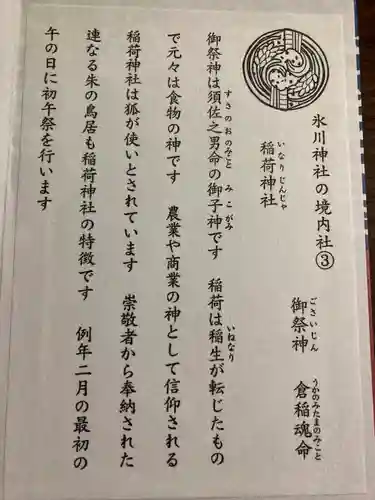 氷川神社の境内社③
稲荷神社
いなりじんじゃ
御祭神　倉稲魂命
ごさいじん　うかのみたまのみこと
御祭神は須佐之男命の御子神です　稲荷は稲生が転じたもの
すさのおのみこと　みこがみ　いねなり
で元々は食物の神です　農業や商業の神として信仰される
稲荷神社は狐が使いとされています　崇敬者から奉納された
連なる朱の鳥居も稲荷神社の特徴です　例年二月の最初の
午の日に初午祭を行います